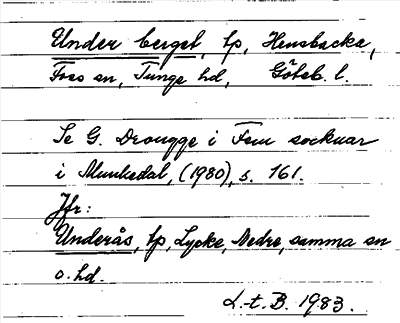 Under berget, tp, Hensbacka,
Foss sn, Tunge hd, Göteb. l.
Se G. Drougge i Fem socknar
i Munkedal, (1980), s. 161.
Jfr:
Underås, tp, Lycke, Nedre, samma sn
o. hd.
L.-t. B. 1983.